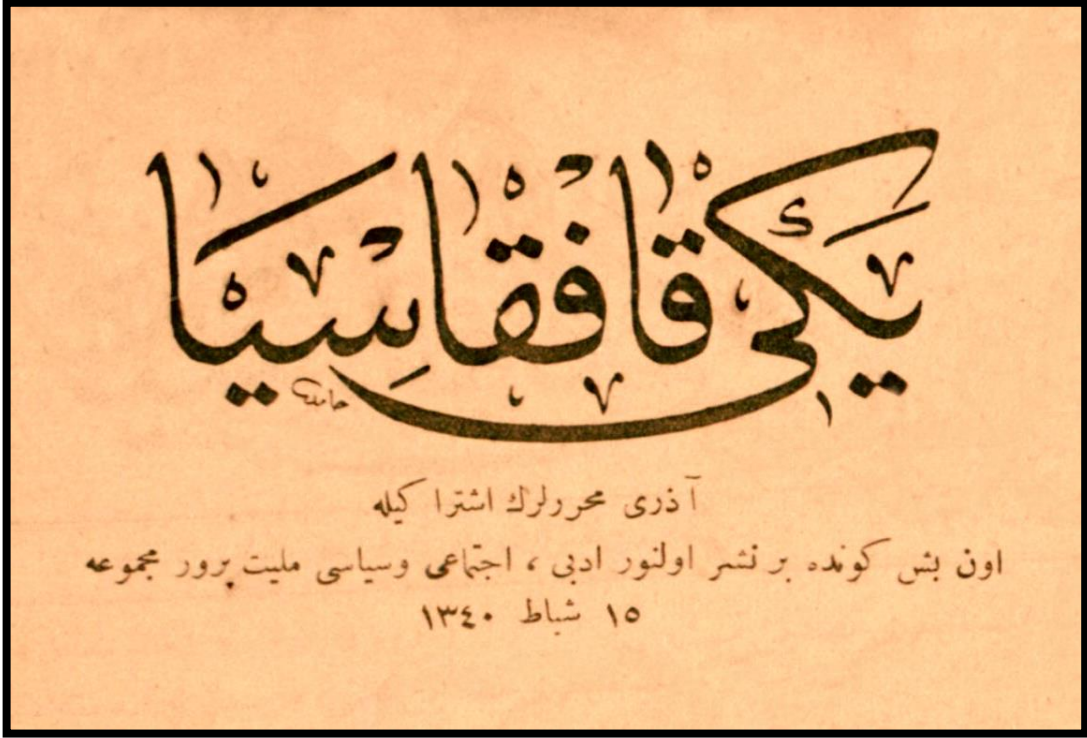 یکی قافقاسیا
حامد
آذری محررلرك اشتراکیله
اون بش کونده بر نشر اولنور ادبی ، اجتماعی وسیاسی ملیت پرور مجموعه
١٥ شباط ١٣٤٠